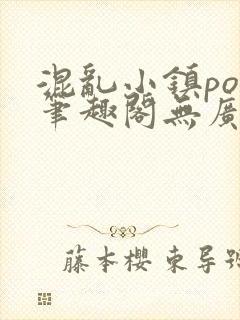 混亂小鎮po
筆趣閣無廣
藤本櫻 東导